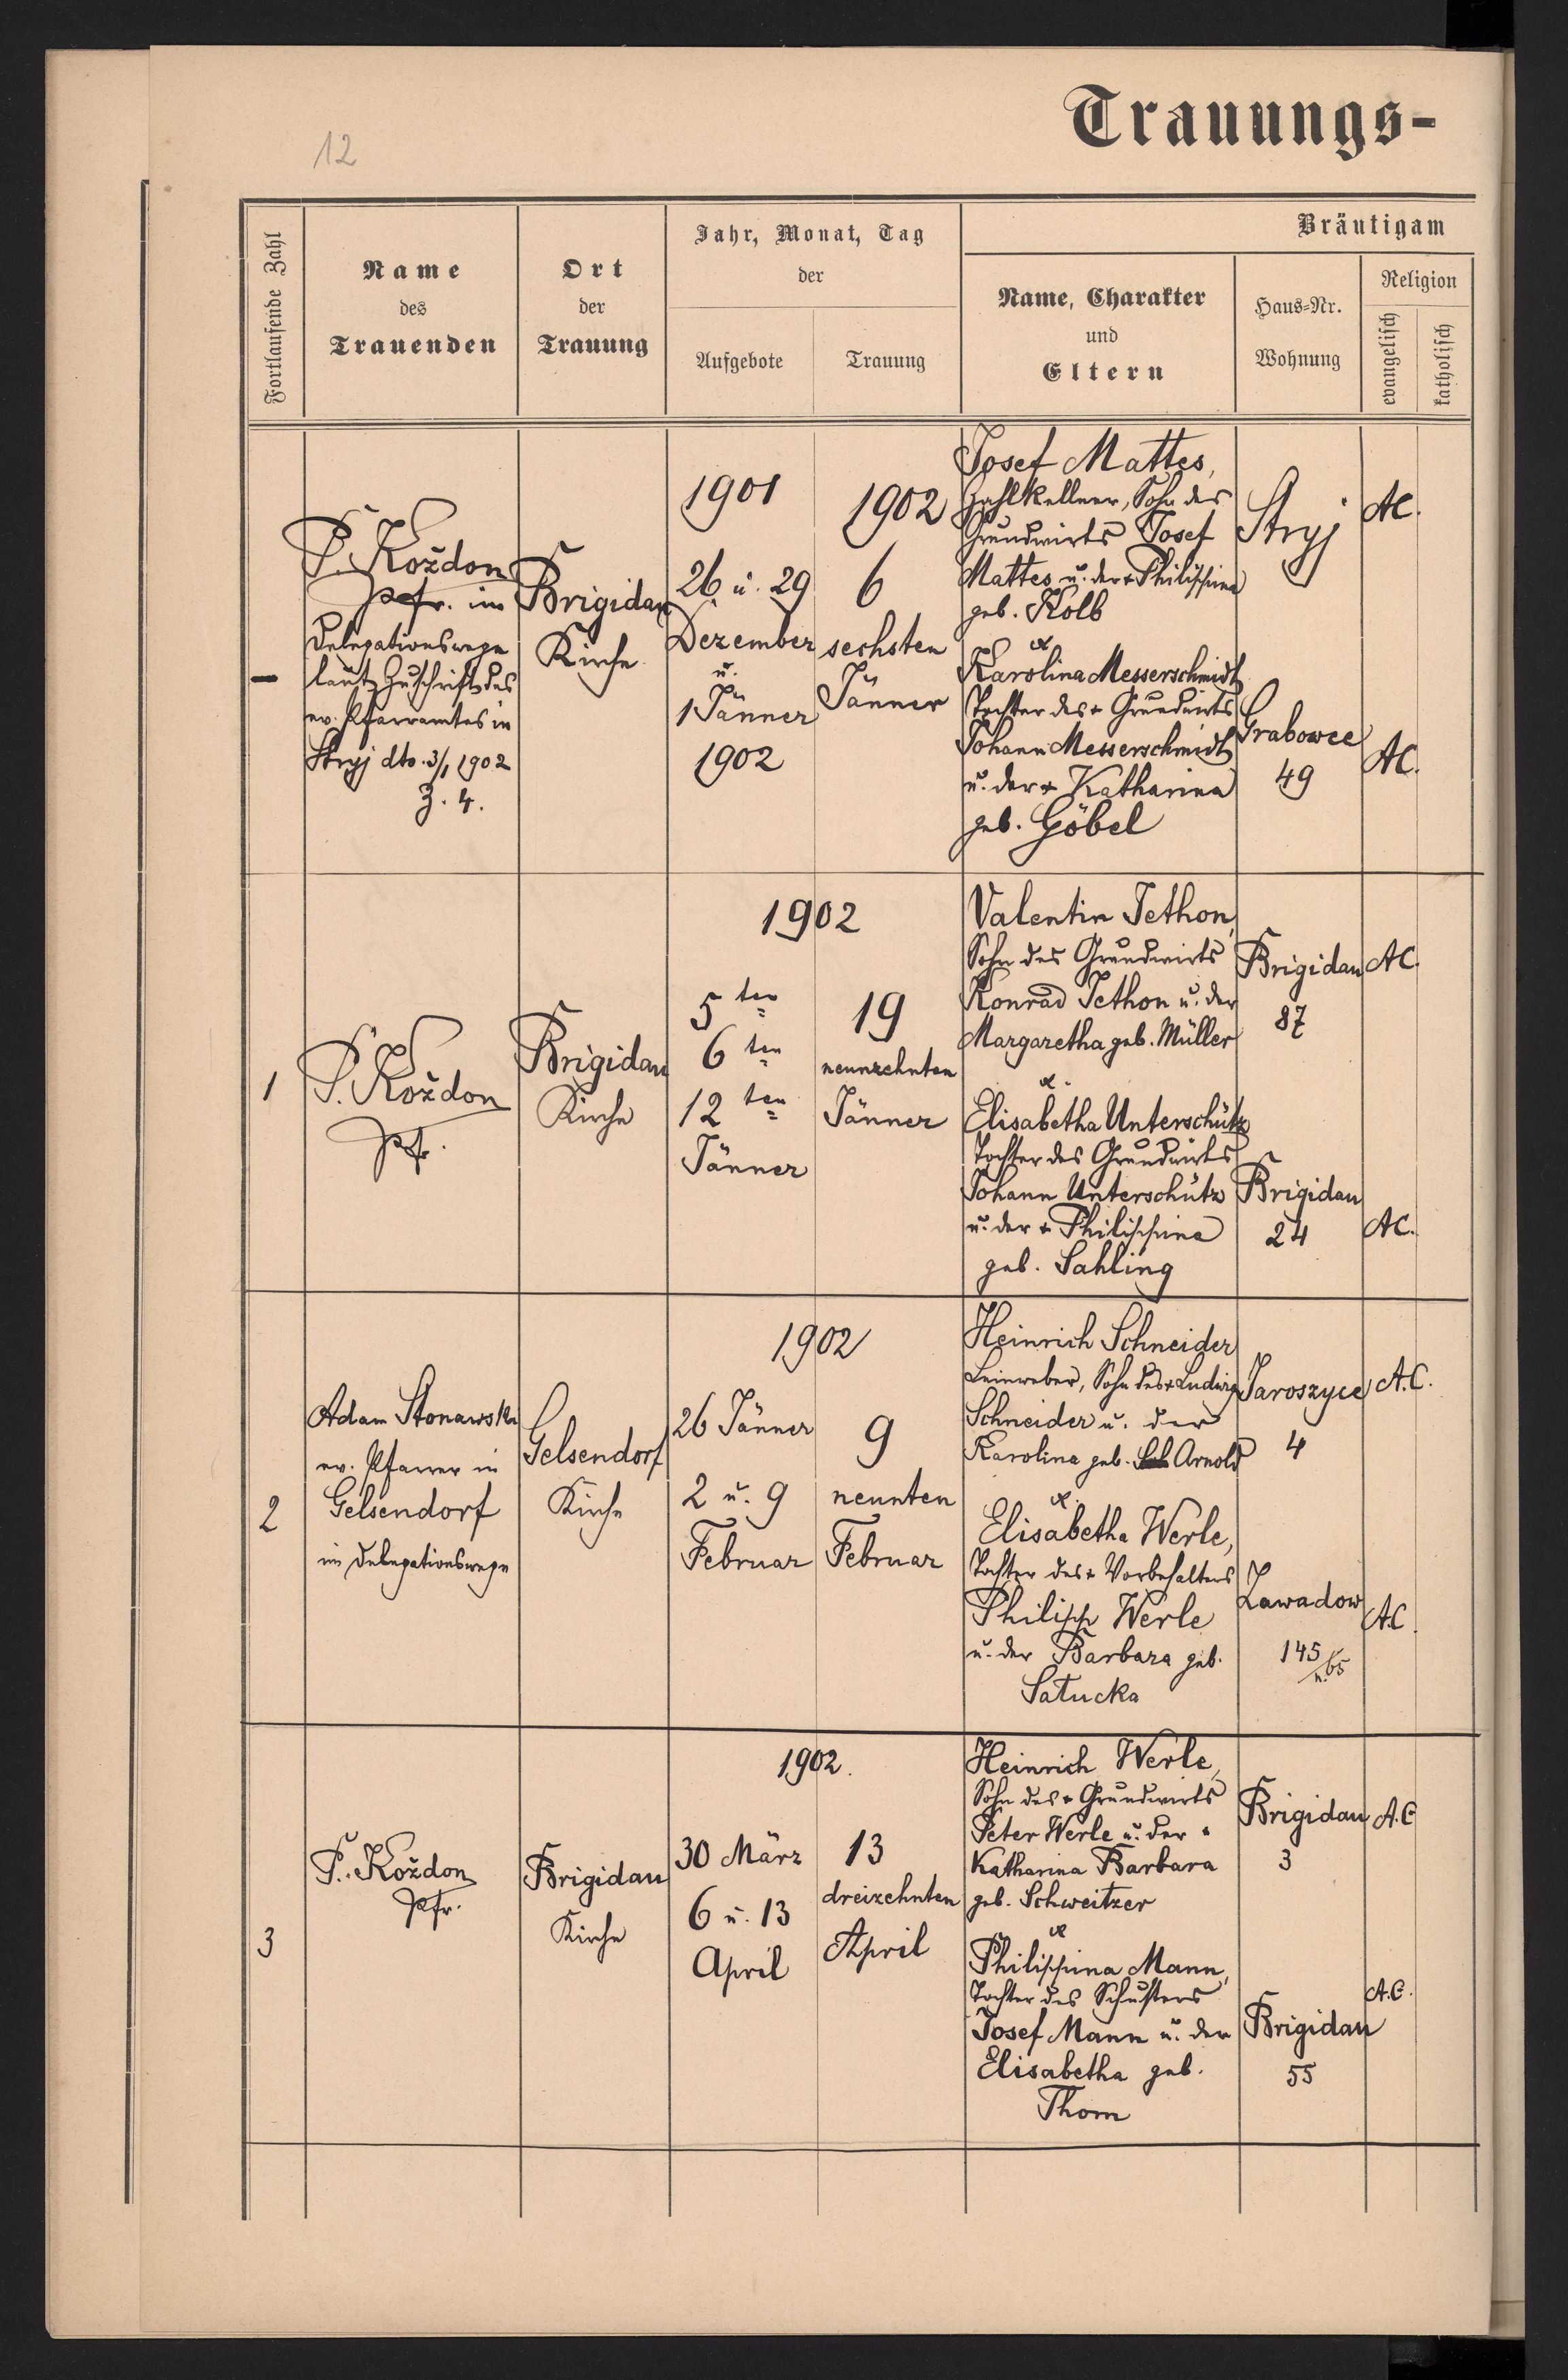 12
Trauungs-
Fortlaufende Zahl
Name
des
Trauenden
Ort
der
Trauung
Jahr, Monat, Tag
der
Aufgebote
Trauung
Bräutigam
Name, Charakter
und
Eltern
Haus-Nr.
Wohnung
Religion
evangelisch
katholisch
—
P. Koždon
Pfr. im
Delegationswege
laut Zuschrift des
ev. Pfarramtes in
Stryj dto. 3/1 1902
Z. 4.
Brigidau
Kirche
1901
26 u. 29
Dezember
u.
1 Jänner
1902
1902
6
sechsten
Jänner
Josef Mattes,
Zahlkellner, Sohn des
Grundwirts Josef
Mattes u. der + Philippina
geb. Kolb
&
Karolina Messerschmidt
Tochter des + Grundwirts
Johann Messerschmidt
u. der + Katharina
geb. Göbel
Stryj
Grabowce
49
AC.
AC.
1
P. Koždon
Pfr.
Brigidau
Kirche
1902
5 ten
6 ten
12 ten
Jänner
19
neunzehnten
Jänner
Valentin Jethon,
Sohn des Grundwirts
Konrad Jethon u. der
Margaretha geb. Müller
&
Elisabetha Unterschütz
Tochter des Grundwirts
Johann Unterschütz
u. der + Philippina
geb. Sahling
Brigidau
87
Brigidau
24
AC.
AC.
2
Adam Stonawski
ev. Pfarrer in
Gelsendorf
im Delegationswege
Gelsendorf
Kirche
1902
26 Jänner
2 u. 9
Februar
9
neunten
Februar
Heinrich Schneider
Leinweber, Sohn des + Ludwig
Schneider u. der
Karolina geb. Arnold
&
Elisabetha Werle,
Tochter des + Vorbehalters
Philipp Werle
u. der Barbara geb.
Satucka
Jaroszyce
4
Zawadow
145
n. 65
A.C.
A.C.
3
P. Koždon
Pfr.
Brigidau
Kirche
1902.
30 März
6 u. 13
April
13
dreizehnten
April
Heinrich Werle,
Sohn des + Grundwirts
Peter Werle u. der +
Katharina Barbara
geb. Schweitzer
&
Philippina Mann,
Tochter des Schusters
Josef Mann u. der
Elisabetha geb.
Thom
Brigidau
3
Brigidau
55
A.C
A.C.